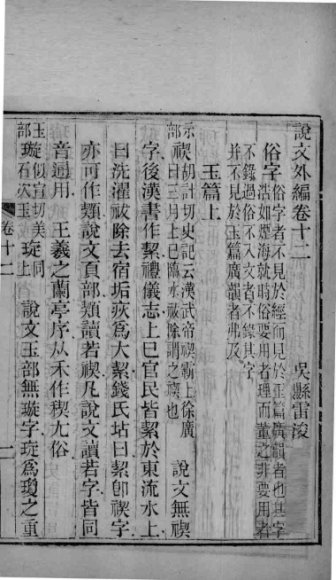 說文外編卷十二
吳縣雷浚
俗字
俗字者不見於經而見於玉篇廣韻者也其字
浩如煙海就時俗要用者理而董之非要用者
不錄過俗不入文者不錄其字
並不見於玉篇廣韻者弗及
玉篇上
示部
禊
胡計切史記云漢武帝禊霸上徐廣
曰三月上巳臨水祓除謂之禊也
說文無禊
字後漢書作絜禮儀志上巳官民皆絜於東流水上
曰洗濯祓除去宿垢疢爲大絜錢氏坫曰絜卽禊字
亦可作類說文頁部類讀若禊凡說文讀若字皆同
音通用
王羲之蘭亭序从禾作稧尤俗
玉部
璇
似宣切美
石次玉
琁
同上
說文玉部無璇字琁爲瓊之重
卷十二
一